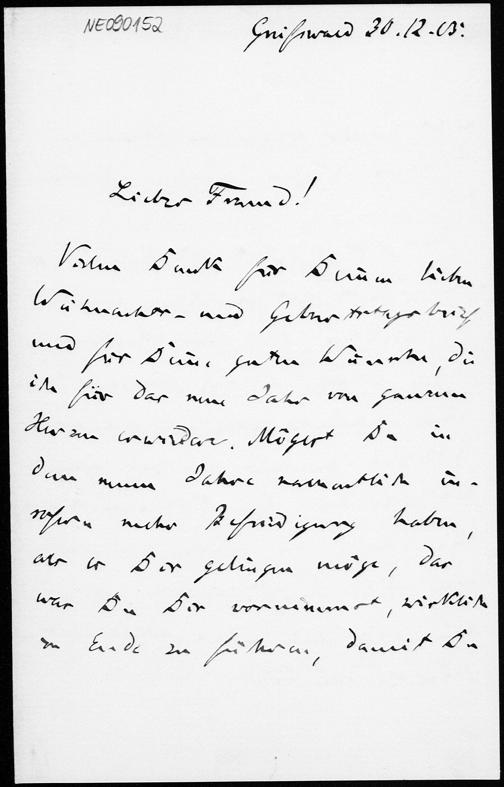 NE090152
Greifswald 30.12.03.
Lieber Freund!
Vielen Dank für Deinen lieben
Weihnachts- und Geburtstagsbrief
und für Deine guten Wünsche, die
ich für das neue Jahr von ganzem
Herzen erwidere. Mögest Du in
dem neuen Jahre namentlich in-
sofern mehr Befriedigung haben,
als es Dir gelingen möge, das
was Du Dir vornimmst, wirklich
zu Ende zu führen, damit Du